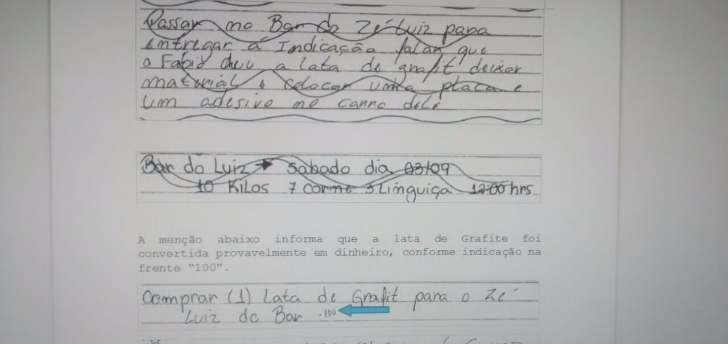 Passar no Bar do Zé Luiz para
entregar a Indicação falar que
o Fabio deu a lata de grafit deixar
material e colocar uma placa e
um adesivo no carro dele
Bar do Luiz → Sabado dia 03/09
10 Kilos 7 carne 3 Linguiça 12:00 hrs
A menção abaixo informa que a lata de Grafite foi
convertida provavelmente em dinheiro, conforme indicação na
frente "100".
Comprar (1) Lata de Grafit para o Zé
Luiz do Bar -100